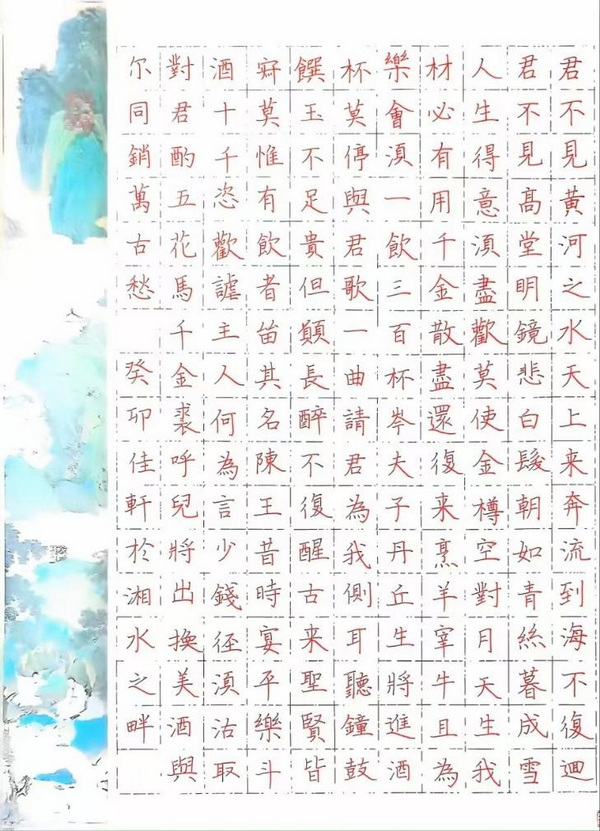 君不見黃河之水天上来奔流到海不復迴
君不見髙堂明鏡悲白髮朝如青絲暮成雪
人生得意湏盡歡莫使金樽空對月天生我
材必有用千金散盡還復来烹羊宰牛且為
樂會湏一飲三百杯岑夫子丹丘生將進酒
杯莫停與君歌一曲請君為我側耳聽鐘鼓
饌玉不足貴但願長醉不復醒古来聖賢皆
寂莫惟有飲者留其名陳王昔時宴平樂斗
酒十千恣歡謔主人何為言少錢徑湏沽取
對君酌五花馬千金裘呼兒將出換美酒與
尔同銷萬古愁 癸卯佳軒於湘水之畔